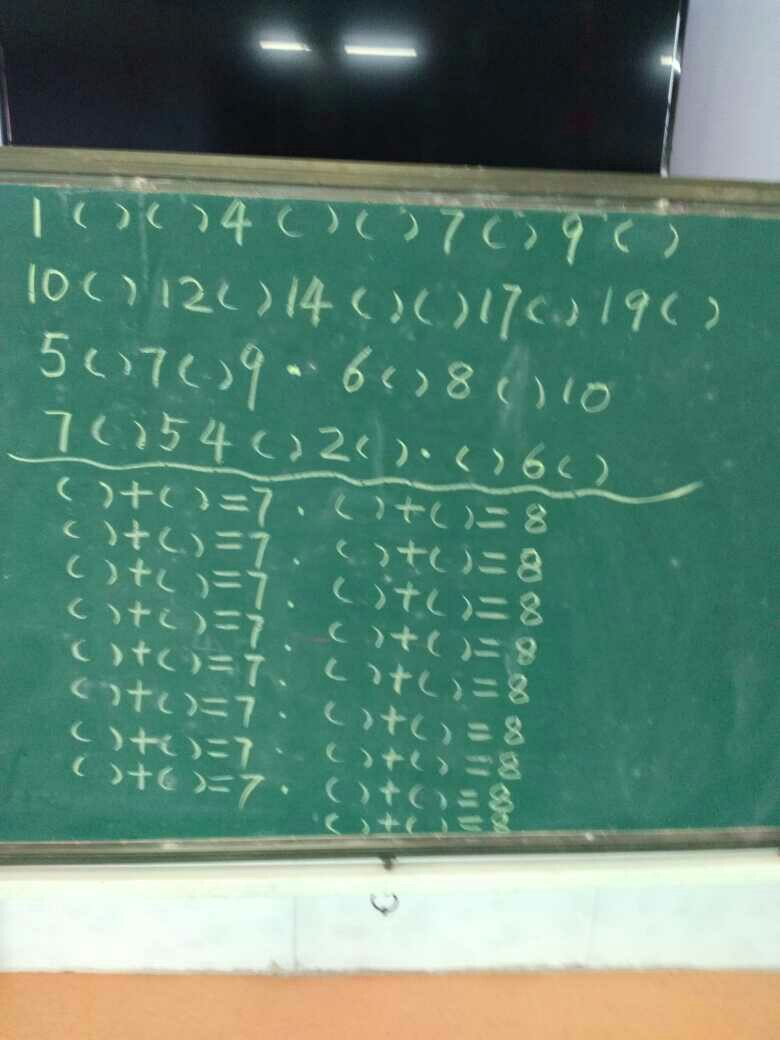 1 ( ) ( ) 4 ( ) ( ) 7 ( ) 9 ( )
10 ( ) 12 ( ) 14 ( ) ( ) 17 ( ) 19 ( )
5 ( ) 7 ( ) 9 · 6 ( ) 8 ( ) 10
7 ( ) 5 4 ( ) 2 ( ) · ( ) 6 ( )
( ) + ( ) = 7 · ( ) + ( ) = 8
( ) + ( ) = 7 · ( ) + ( ) = 8
( ) + ( ) = 7 · ( ) + ( ) = 8
( ) + ( ) = 7 · ( ) + ( ) = 8
( ) + ( ) = 7 · ( ) + ( ) = 8
( ) + ( ) = 7 · ( ) + ( ) = 8
( ) + ( ) = 7 · ( ) + ( ) = 8
( ) + ( ) = 7 · ( ) + ( ) = 8
( ) + ( ) = 8